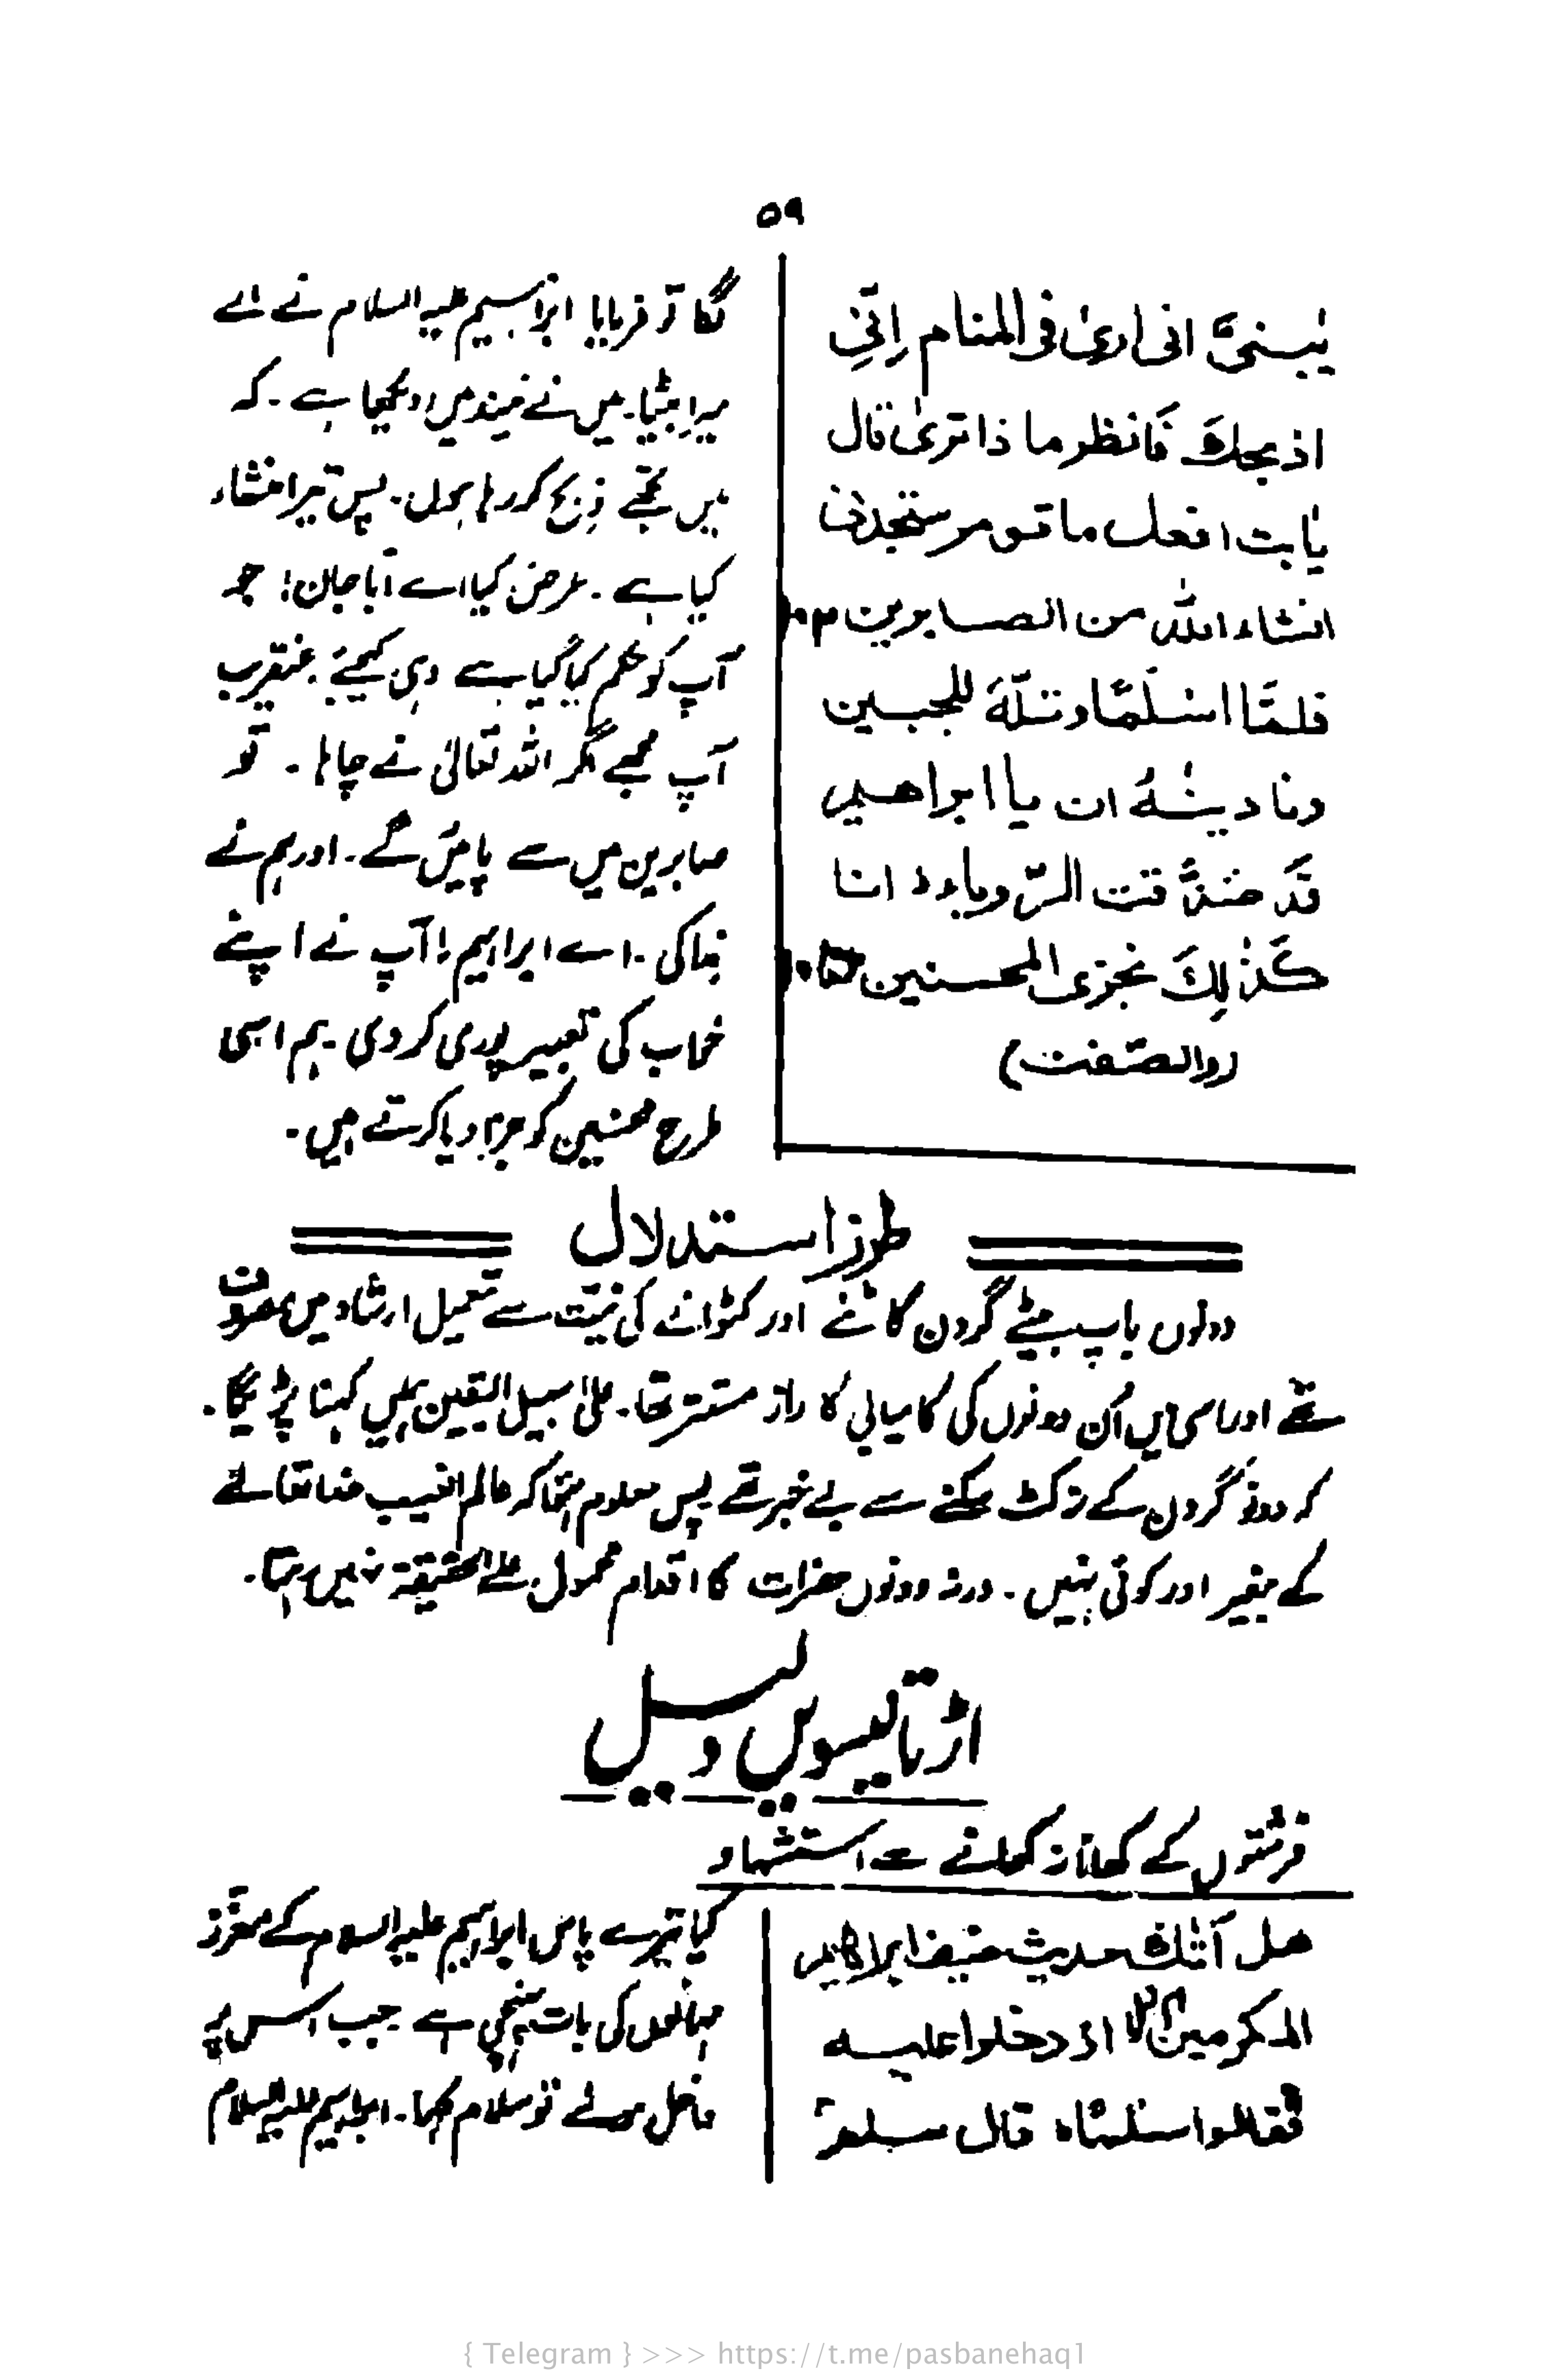 ۵۹
یٰبنیَّ انی اریٰ فی المنام اِنّیِ
اذبحكَ فَانظر ما ذا تریٰ قال
یٰابت افعل ما تومر ستجدنی
انشاء اللّٰہ من الصابرین ۱۰۲
فلمَّا اسْلَمَا وتلّہٗ للجبین
ونادینٰہُ ان یا ابراھیم
قَد صَدَّقت الرّویاء انا
کَذٰلِكَ نجزی المحسنین ۱۰۵
(والصّٰفٰت)
گا تو فرمایا ابراہیم علیہ السلام نے اے
میرا بیٹا۔ میں نے نیند میں دیکھا ہے۔ کہ
میں تجھے ذبح کر رہا ہوں۔ پس تیرا منشاء
کیا ہے۔ عرض کیا اے ابّا جان! جو
آپ کو حکم کیا گیا ہے وہی کیجئے۔ عنقریب
آپ مجھے اگر اللہ تعالیٰ نے چاہا۔ تو
صابرین میں سے پائیں گے۔ اور ہم نے
ندا کی۔ اے ابراہیم! آپ نے اپنے
خواب کی تعبیر پوری کر دی۔ ہم اسی
طرح محسنین کو جزا دیا کرتے ہیں۔
طرز استدلال
دونوں باپ بیٹے گردن کاٹنے اور کٹوانے کی نیّت سے تعمیل ارشاد میں مصروف
تھے اور اسی میں اُن دونوں کی کامیابی کا راز مستتر تھا۔ علیٰ سبیل الیقین ہمیں کہنا پڑیگا۔
کہ دونو گردن کے نہ کٹ سکنے سے بے خبر تھے پس معلوم ہوا کہ عالم الغیب خدا تعالےٰ
کے بغیر اور کوئی نہیں۔ ورنہ دونوں حضرات کا اقدام محمول علےٰ الحقیقۃ نہیں رہتا۔
اڑتالیسویں دلیل
فرشتوں کے کھانا نہ کھانے سے استشہاد
ھل اَتٰك حدیث ضیف ابراھیم
المکرمین اذ دخلوا علیہ
فقالوا سلٰمًا ہ قال سلٰمٌ
کیا تیرے پاس ابراہیم علیہ السلام کے معزّز
مہمانوں کی بات پہنچی ہے جب اس پر
داخل ہوئے تو سلام کہا۔ ابراہیم علیہ السلام
{ Telegram } >>> https://t.me/pasbanehaq1